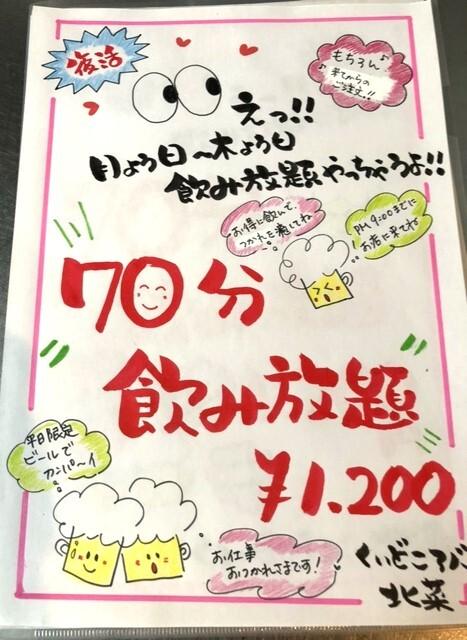 復活
もちろん♪
♪来てからの
ご注文!!
えっ!!
月よう日～木よう日
飲み放題やっちゃうよ!!
お得に飲んで、
つかれを癒してね
PM 9:00までに
お店に来てね
70分
飲み放題
¥1.200
平日限定
ビールで
カンパ～イ
お仕事
おつかれさまです!
くいどころバー
北菜